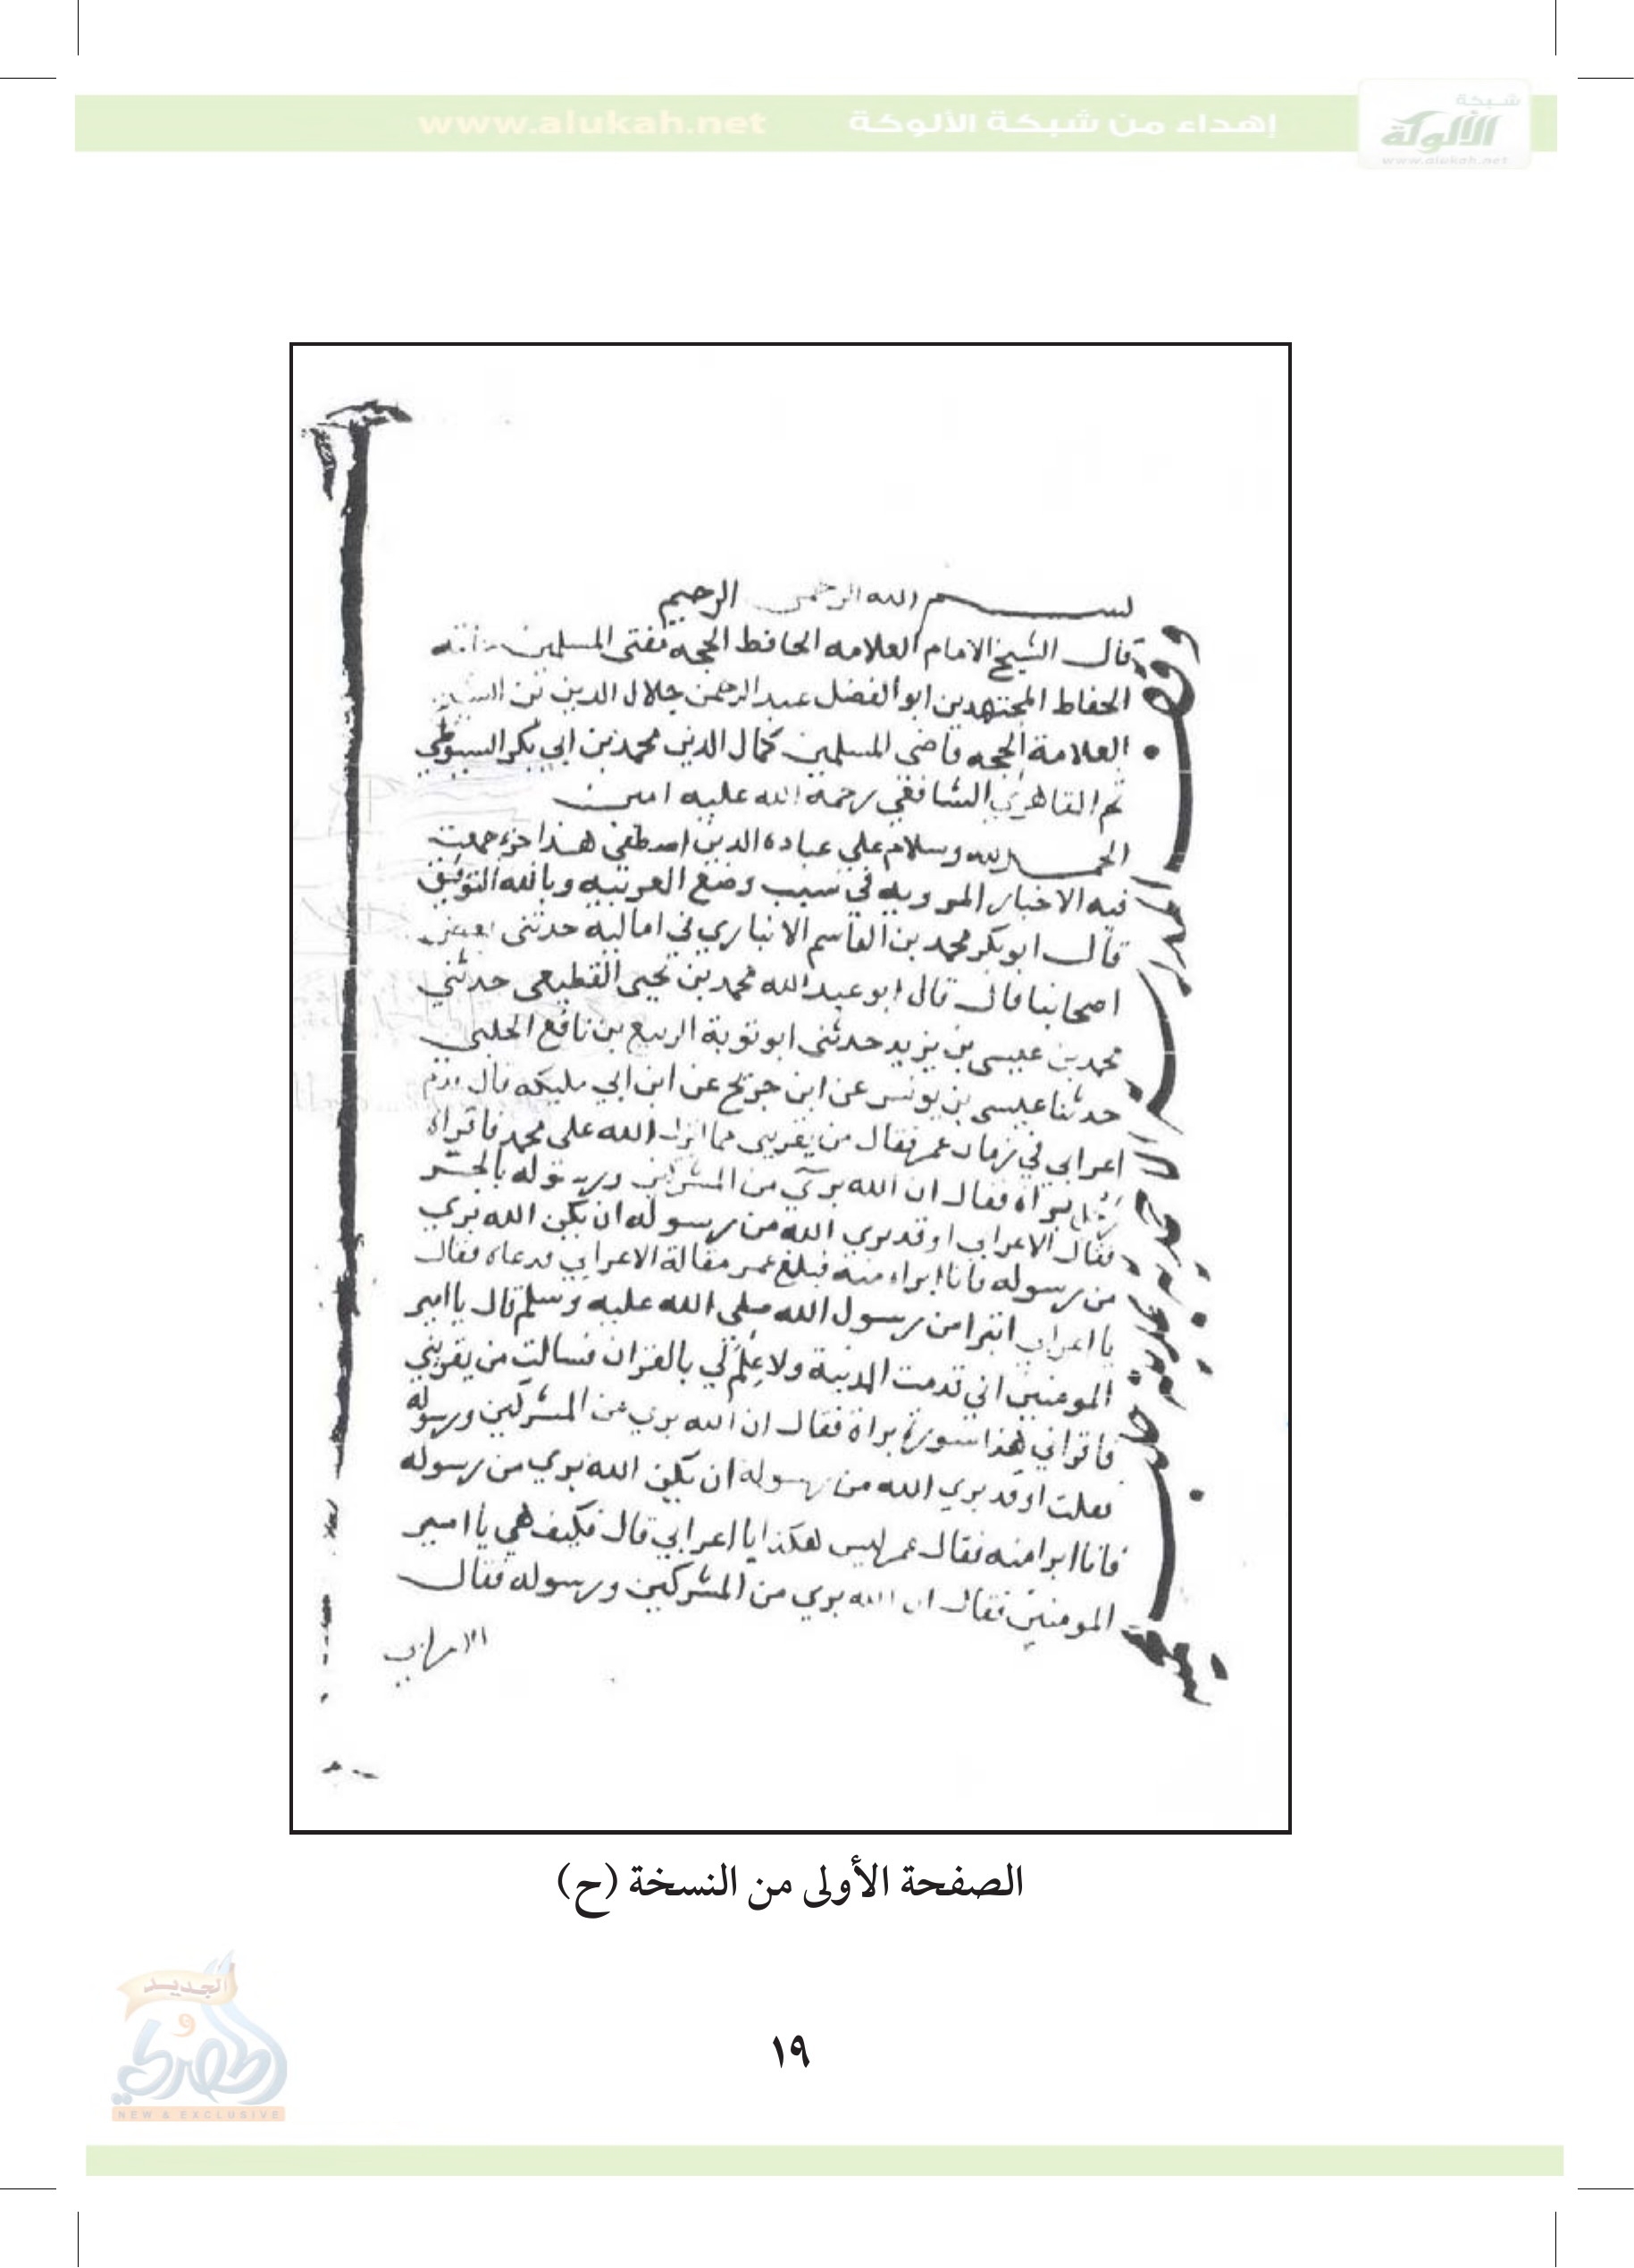 شبكة
الألوكة
www.alukah.net
إهداء من شبكة الألوكة www.alukah.net
بسم الله الرحمن الرحيم
قال الشيخ الامام العلامه الحافظ الحجه مفتى المسلمين
الحفاظ المجتهدين ابو الفضل عبد الرحمن جلال الدين بن
العلامة الحجه قاضى المسلمين كمال الدين محمد بن ابي بكر السيوطي
ثم القاهري الشافعي رحمه الله عليه امين
الحمد لله وسلام علي عباده الدين اصطفي هذا جزء جمعت
فيه الاخبار المرويه في سبب وضع العربيه وبالله التوفيق
قال ابو بكر محمد بن القاسم الانباري في اماليه حدثنى بعض
اصحابنا قال قال ابو عبد الله محمد بن يحيى القطيعى حدثني
محمد بن عيسى بن يزيد حدثنى ابو توبة الربيع بن نافع الحلبى
حدثنا عيسى بن يونس عن ابن جريج عن ابن ابي مليكه قال قدم
اعرابي في زمان عمر فقال من يقريني مما انزل الله على محمد فاقراه
رجل براة فقال ان الله بري من المشركين ورسوله بالجر
فقال الاعرابي اوقد بري الله من رسوله ان يكن الله بري
من رسوله فانا ابراء منه فبلغ عمر مقالة الاعرابي فدعاه فقال
يا اعرابي اتبرا من رسول الله صلى الله عليه وسلم قال يا امير
المومنين اني قدمت المدينة ولا علم لي بالقران فسالت من يقريني
فاقراني هذا سورة براة فقال ان الله بري من المشركين ورسوله
فقلت اوقد بري الله من رسوله ان يكن الله بري من رسوله
فانا ابرا منه فقال عمر ليس هكذا يا اعرابي قال فكيف هي يا امير
المومنين فقال ان الله بري من المشركين ورسوله فقال
الاعرابي
الصفحة الأولى من النسخة (ح)
١٩
الجديد
و
الحصري
NEW & EXCLUSIVE